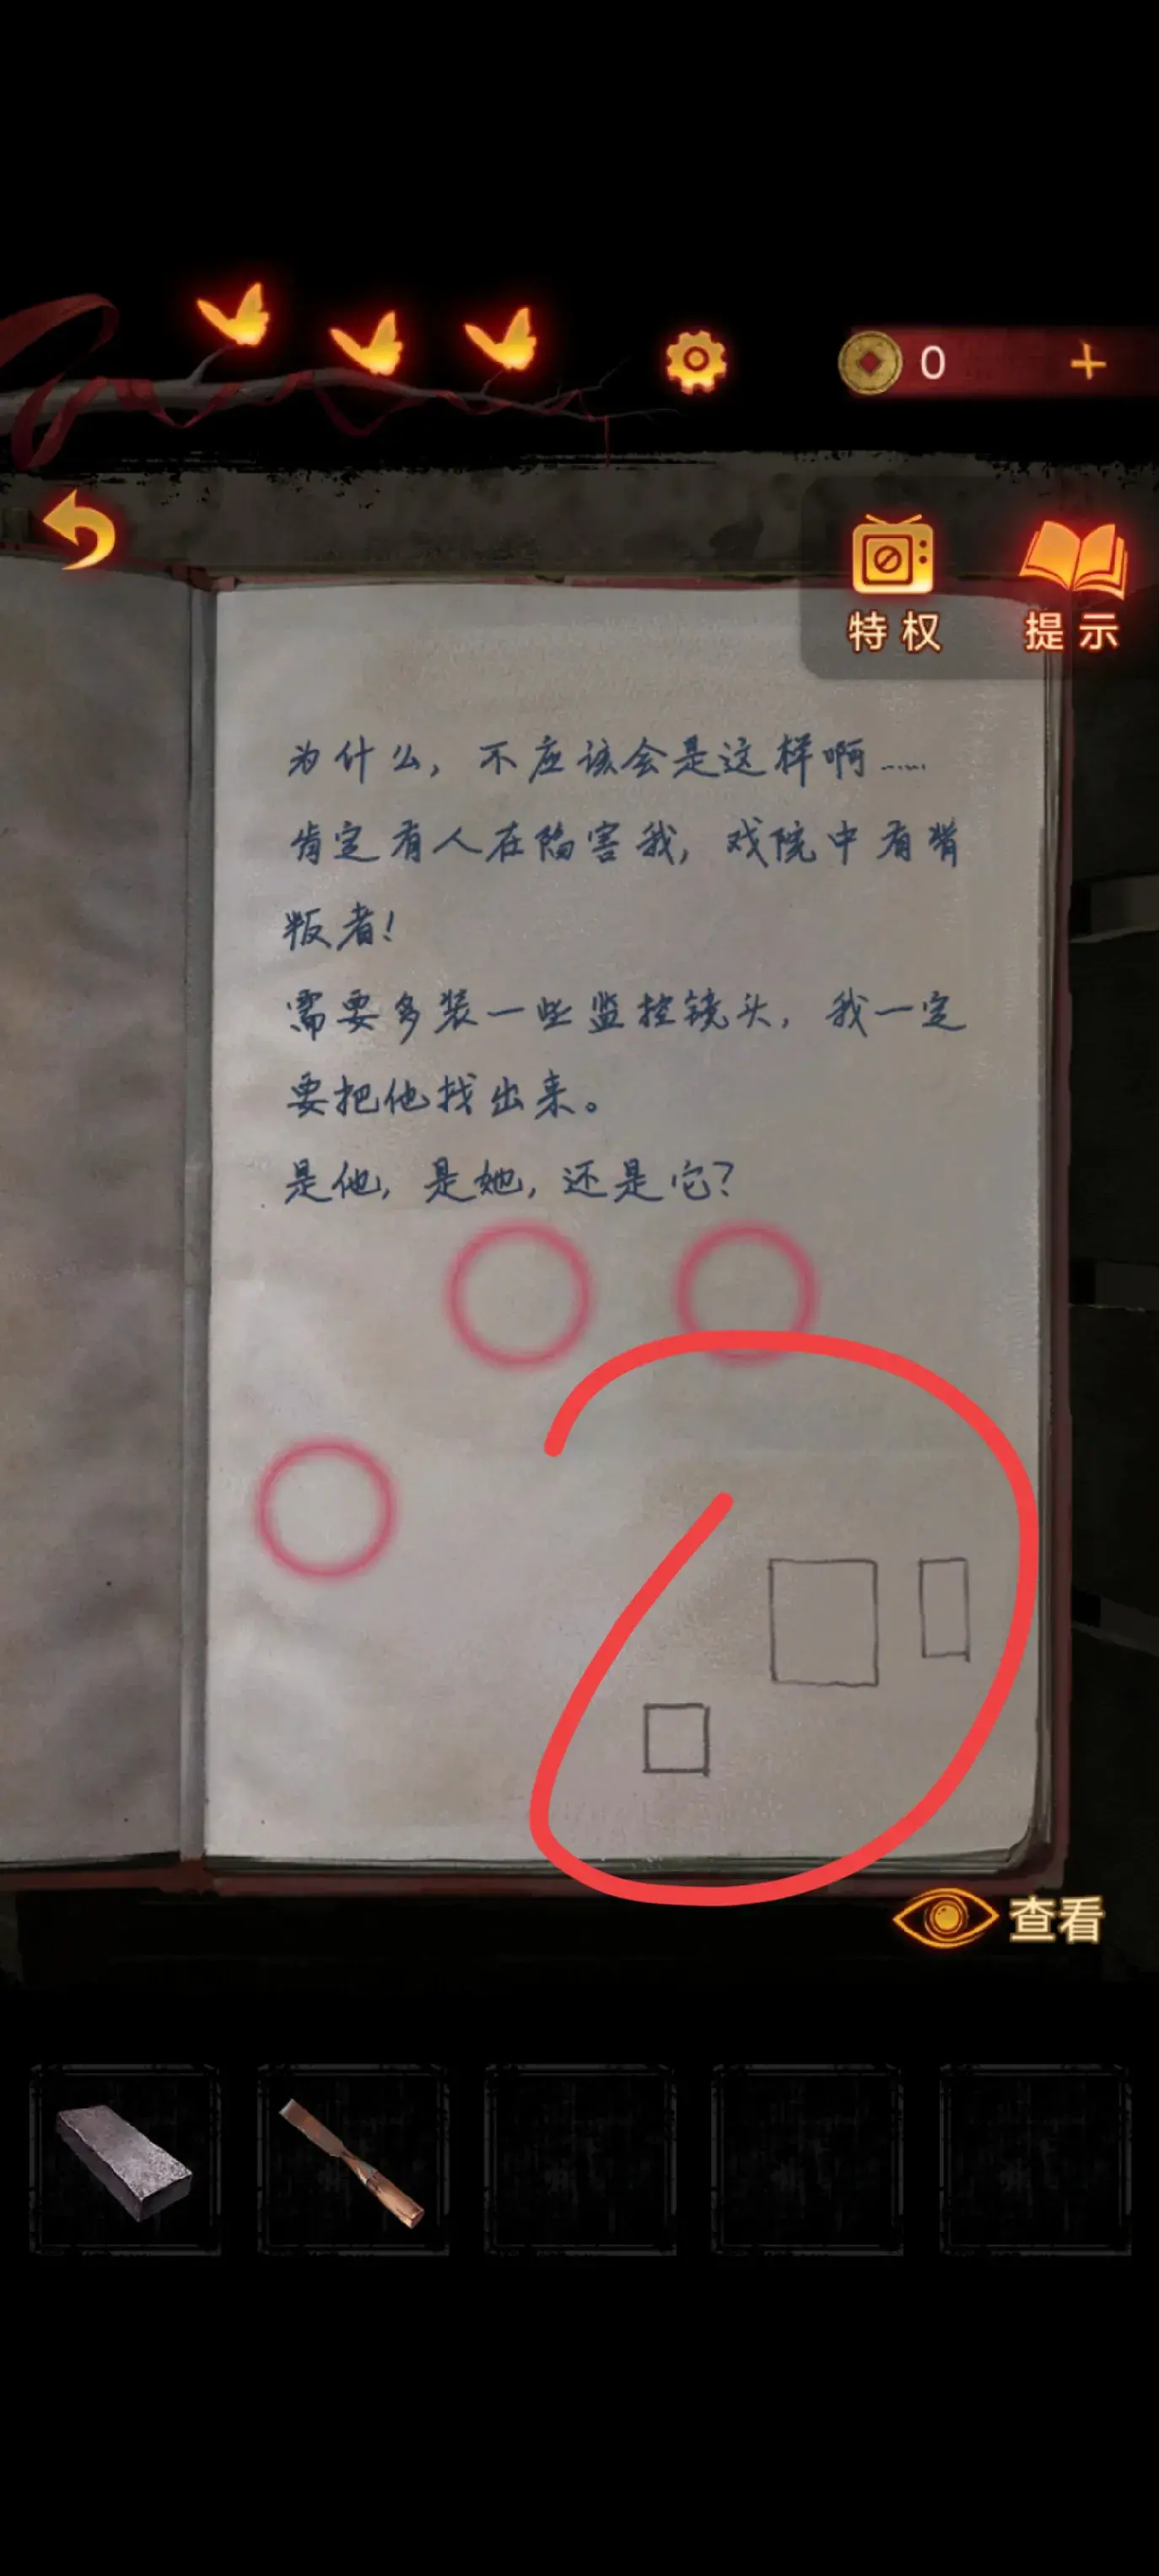 0
特权
提示
为什么，不应该会是这样啊……
肯定有人在陷害我，戏院中有背
叛者！
需要多装一些监控镜头，我一定
要把他找出来。
是他，是她，还是它？
查看